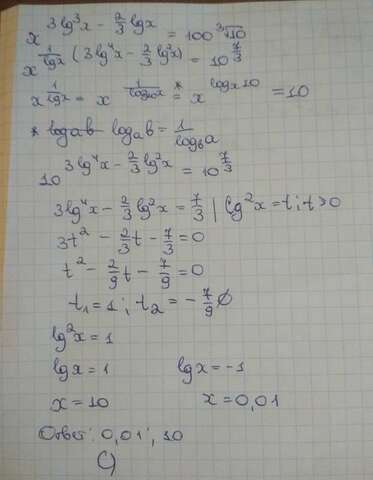 x^(3lg³x - 2/3 lgx) = 100 ∛10
x^(1/lgx (3lg⁴x - 2/3 lg²x)) = 10^(7/3)
x^(1/lgx) = x^(1/log₁₀x) *= x^(logₓ10) = 10
* logab logₐb = 1/log_b a
10^(3lg⁴x - 2/3 lg²x) = 10^(7/3)
3lg⁴x - 2/3 lg²x = 7/3 | lg²x = t; t>0
3t² - 2/3 t - 7/3 = 0
t² - 2/9 t - 7/9 = 0
t₁ = 1; t₂ = - 7/9 ∅
lg²x = 1
lgx = 1 lgx = -1
x = 10 x = 0,01
Ответ: 0,01; 10
C)